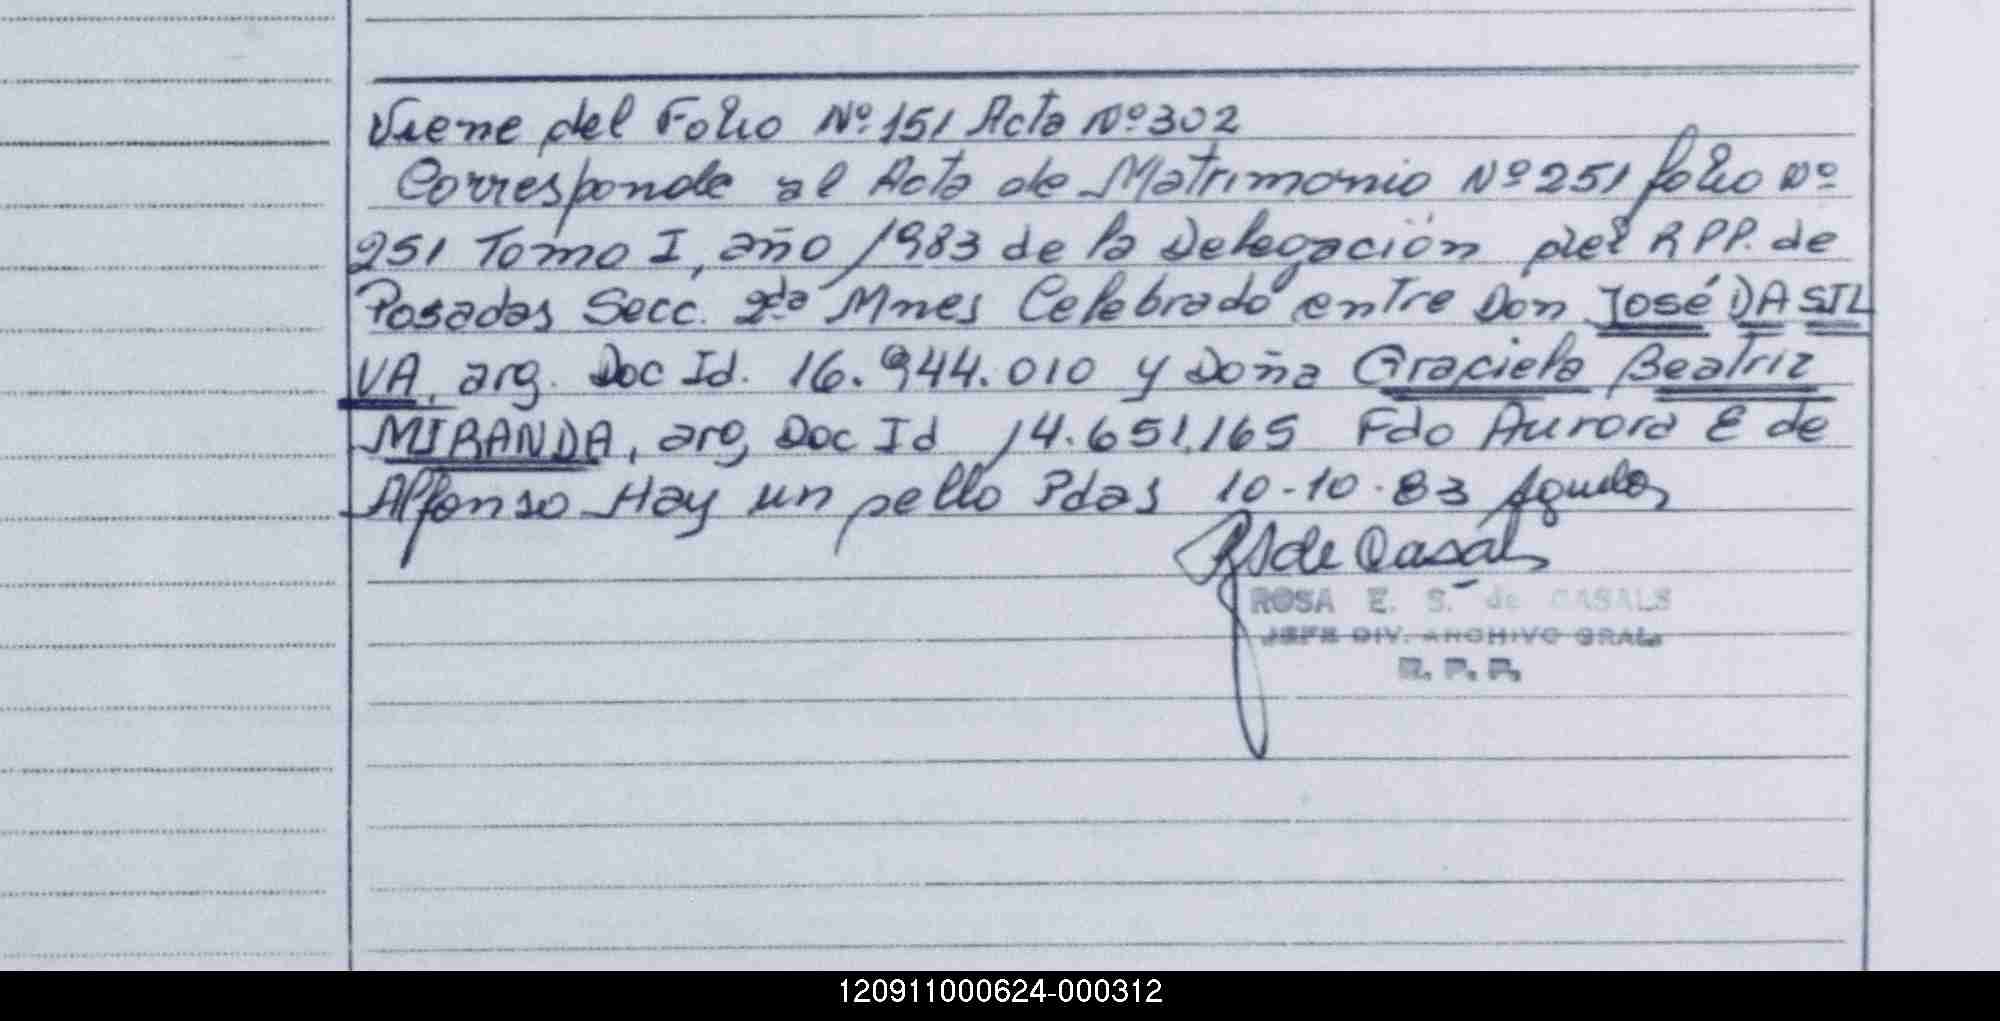 Viene del Folio Nº 151 Acta Nº 302
Corresponde al Acta de Matrimonio Nº 251 folio Nº
251 Tomo I, año 1983 de la Delegación del R.P.P. de
Posadas Secc. 2da Mnes Celebrado entre Don José DA SIL
VA, arg. Doc Id. 16.944.010 y Doña Graciela Beatriz
MIRANDA, arg, Doc Id 14.651.165 Fdo Aurora E de
Alfonso Hay un sello Pdas 10-10-83
RS de Casals
ROSA E. S. de CASALS
JEFE DIV. ARCHIVO GRAL.
R. P. P.
120911000624-000312